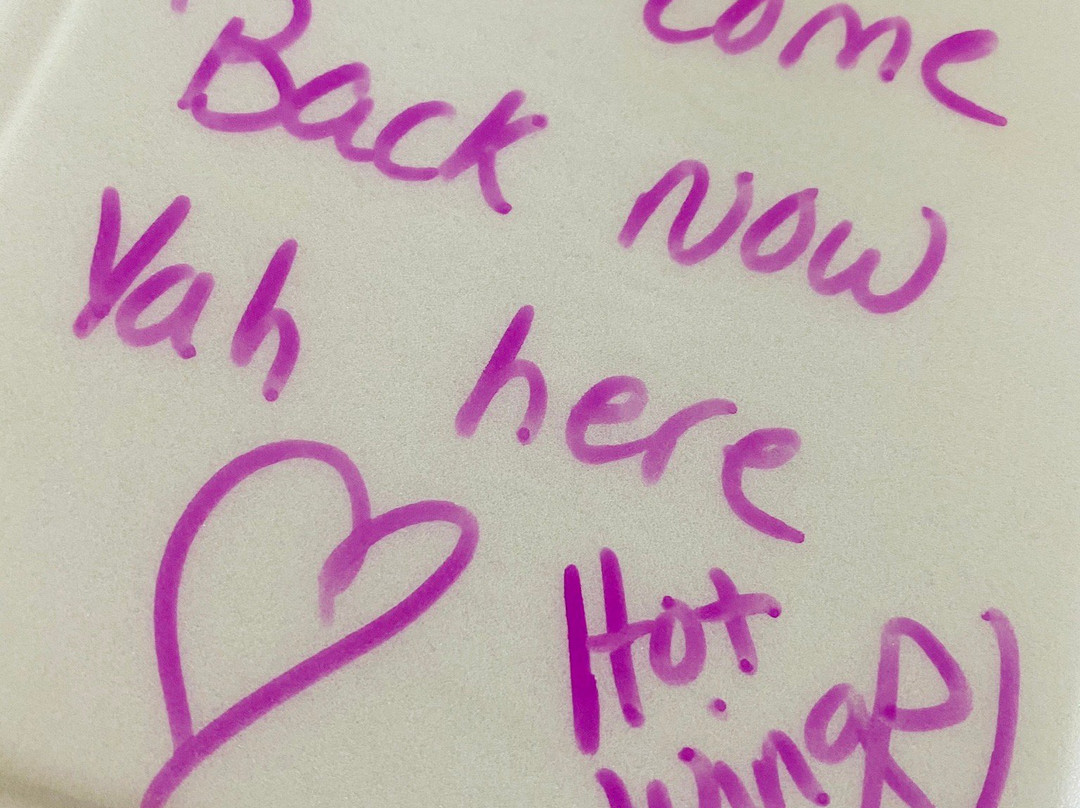 come
Back now
Yah here
Hot